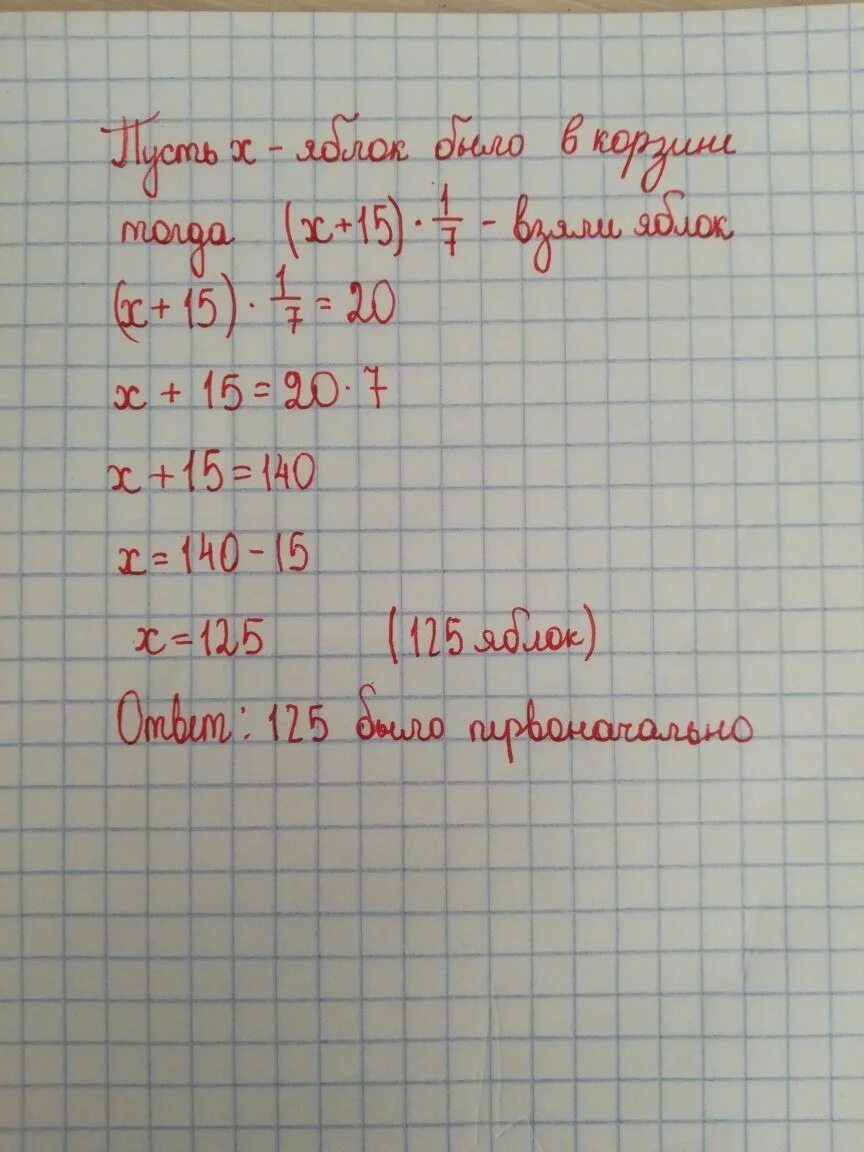 Пусть x - яблок было в корзине
тогда (x+15)·1/7 - взяли яблок
(x+15)·1/7=20
x+15=20·7
x+15=140
x=140-15
x=125 (125 яблок)
Ответ: 125 было первоначально